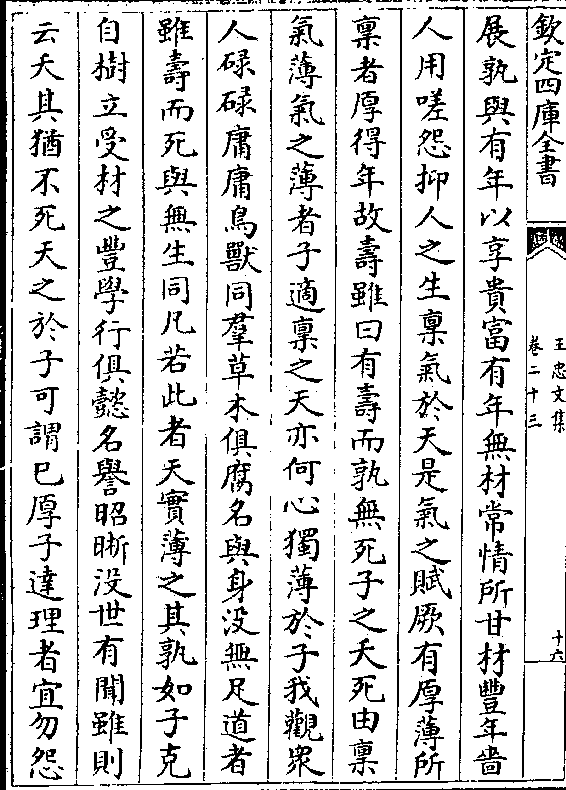 欽定四庫全書
王忠文集
卷二十三
十六
展孰與有年以享貴富有年無材常情所甘材豐年嗇
人用嗟怨抑人之生稟氣於天是氣之賦厥有厚薄所
稟者厚得年故壽雖曰有壽而孰無死子之夭死由稟
氣薄氣之薄者子適稟之天亦何心獨薄於子我觀衆
人碌碌庸庸鳥獸同羣草木俱腐名與身没無足道者
雖壽而死與無生同凡若此者天實薄之其孰如子克
自樹立受材之豐學行俱懿名譽昭晰没世有聞雖則
云夭其猶不死天之於子可謂已厚子達理者宜勿怨